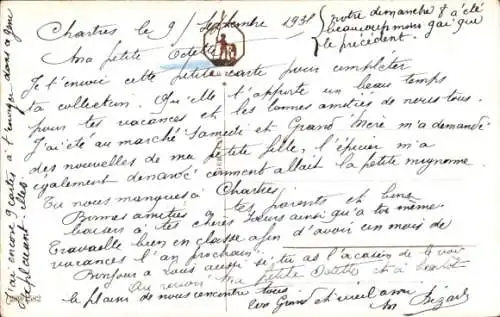 Chartres le 9 / Septembre 1931
{notre dimanche 8 a été
beaucoup moins gai que
le précédent.
Ma petite Odette
Je t'envoie cette petite carte pour compléter
ta collection. Qu'elle t'apporte un beau temps
pour tes vacances et les bonnes amitiés de nous tous.
J'ai été au marché Samedi et Grand'Mère m'a demandé
des nouvelles de ma petite fille, l'épicier m'a
également demandé comment allait la petite mignonne.
Tu nous manques à Chartres.
Bonnes amitiés à tes parents et bons
baisers à tes chères sœurs ainsi qu'à toi même.
Travaille bien en classe afin d'avoir un mois de
vacances l'an prochain.
Bonjour à vous aussi si tu as l'occasion de le voir
Au revoir Ma petite Odette et à bientôt
le plaisir de nous rencontrer tous
ton Grand et vieil ami
M Bizard
J'ai encore 9 cartes à t'envoyer dans ce genre